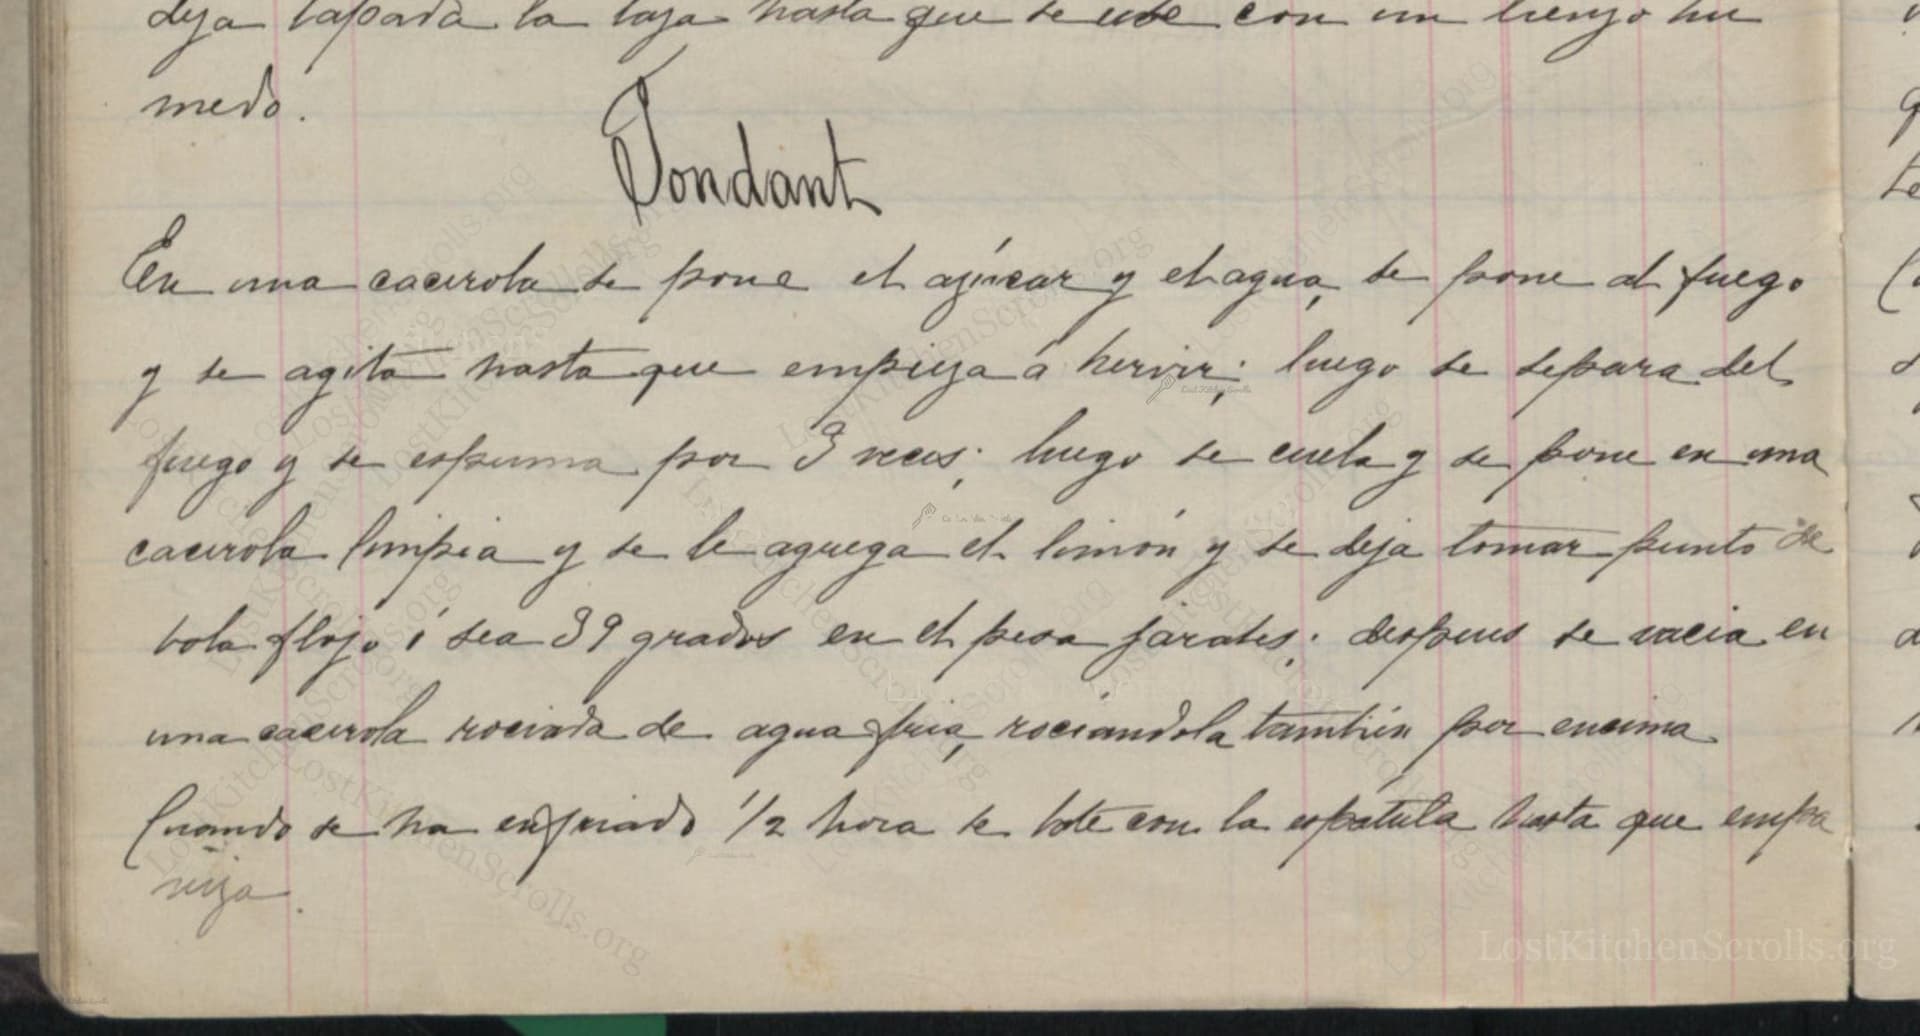 deja tapada la taza hasta que se use con un lienzo hu
medo.
Fondant
En una cacerola se pone el azúcar y el agua, se pone al fuego
y se agita hasta que empieza á hervir; luego se separa del
fuego y se espuma por 3 veces; luego se cuela y se pone en una
cacerola limpia y se le agrega el limón y se deja tomar punto de
bola flojo ó sea 39 grados en el pesa jarabes; despues se vacia en
una cacerola rociada de agua fria, rociandola también por encima
Cuando se ha enfriado 1/2 hora se bate con la espatula hasta que empa
niza.
LostKitchenScrolls.org